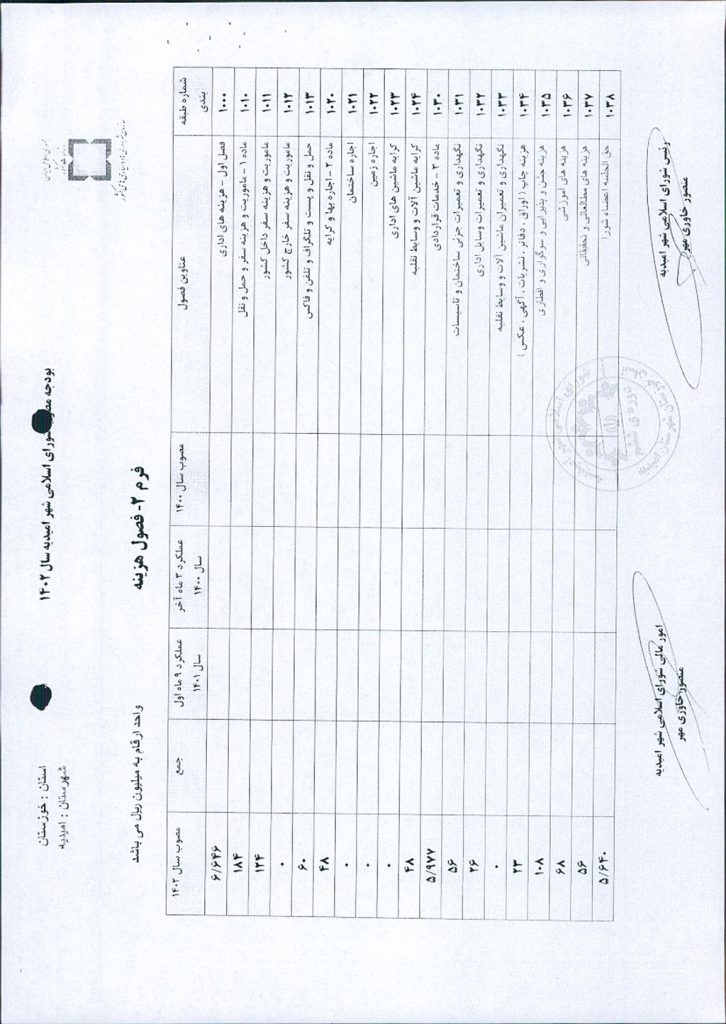 بودجه مصوب شورای اسلامی شهر امیدیه سال ۱۴۰۲
استان : خوزستان
شهرستان : امیدیه
فرم ۲- فصول هزینه
واحد ارقام به میلیون ریال می باشد
شماره طبقه بندی عناوین فصول مصوب سال ۱۴۰۰ عملکرد ۳ ماه آخر سال ۱۴۰۰ عملکرد ۹ ماه اول سال ۱۴۰۱ جمع مصوب سال ۱۴۰۲
۱۰۰۰ فصل اول – هزینه های اداری ۶/۶۴۶
۱۰۱۰ ماده ۱ – ماموریت و هزینه سفر و حمل و نقل ۱۸۴
۱۰۱۱ ماموریت و هزینه سفر داخل کشور ۱۲۴
۱۰۱۲ ماموریت و هزینه سفر خارج کشور ۰
۱۰۱۳ حمل و نقل و پست و تلگراف و تلفن و فاکس ۶۰
۱۰۲۰ ماده ۲ – اجاره بها و کرایه ۴۸
۱۰۲۱ اجاره ساختمان ۰
۱۰۲۲ اجاره زمین ۰
۱۰۲۳ کرایه ماشین های اداری ۰
۱۰۲۴ کرایه ماشین آلات و وسایط نقلیه ۴۸
۱۰۳۰ ماده ۳ – خدمات قراردادی ۵/۹۷۷
۱۰۳۱ نگهداری و تعمیرات جزئی ساختمان و تاسیسات ۵۶
۱۰۳۲ نگهداری و تعمیرات وسایل اداری ۲۶
۱۰۳۳ نگهداری و تعمیران ماشین آلات و وسایط نقلیه ۰
۱۰۳۴ هزینه چاپ ( اوراق ، دفاتر ، نشریات ، آگهی ، عکس ) ۲۳
۱۰۳۵ هزینه جشن و پذیرایی و سوگواری و افطاری ۱۰۸
۱۰۳۶ هزینه های آموزشی ۶۸
۱۰۳۷ هزینه های مطالعاتی و تحقیقاتی ۵۶
۱۰۳۸ حق الجلسه اعضاء شورا ۵/۶۴۰
رئیس شورای اسلامی شهر امیدیه
منصور خاوری مهر
امور مالی شورای اسلامی شهر امیدیه
منصور خاوری مهر